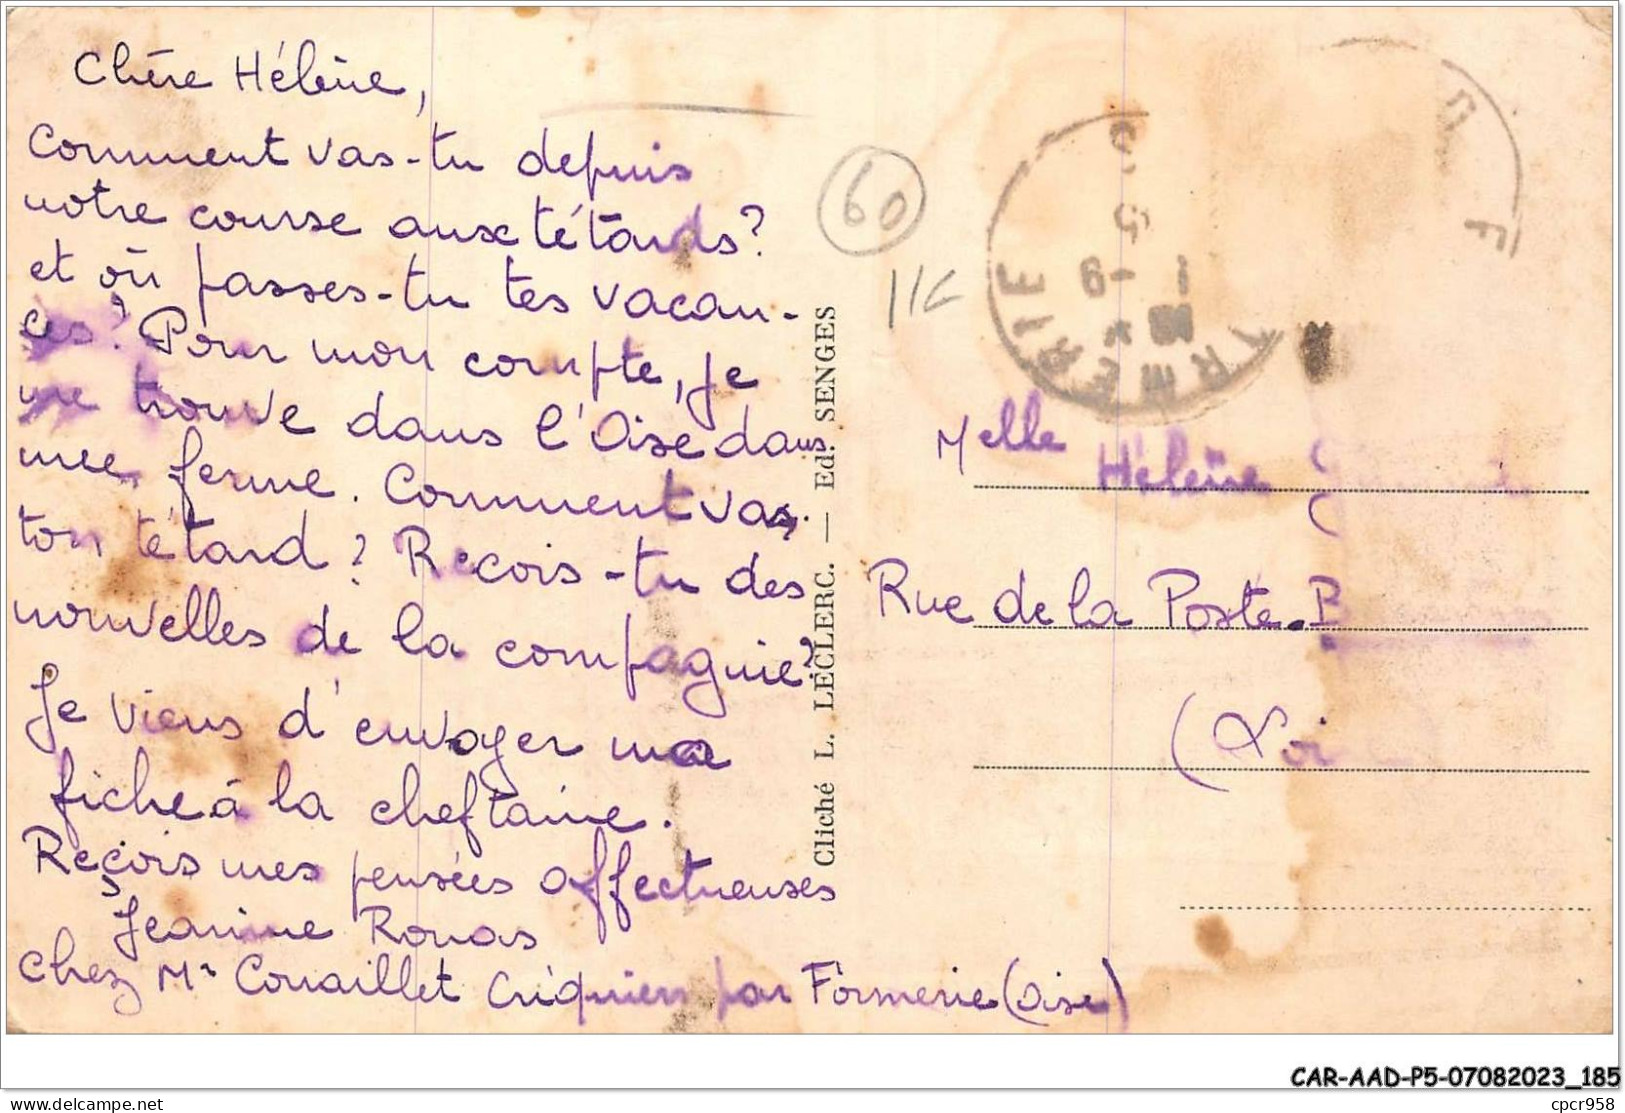 Chère Hélène,
Comment vas-tu depuis
notre course aux tétards?
et où passes-tu tes vacan-
ces? Pour mon compte, je
me trouve dans l'Oise dans
une ferme. Comment va
ton tétard? Reçois-tu des
nouvelles de la compagnie?
Je viens d'envoyer ma
fiche à la cheftaine.
Reçois mes pensées affectueuses
Jeanine Rouas
Chez Mr Couaillet Criquiers par Formerie (Oise)
Cliché L. LECLERC. — Ed. SENGES
60
RMERIE
1 -9
Melle
Hélène
Rue de la Poste.
(Loi
CAR-AAD-P5-07082023_185
delcampe.net
cpcr958